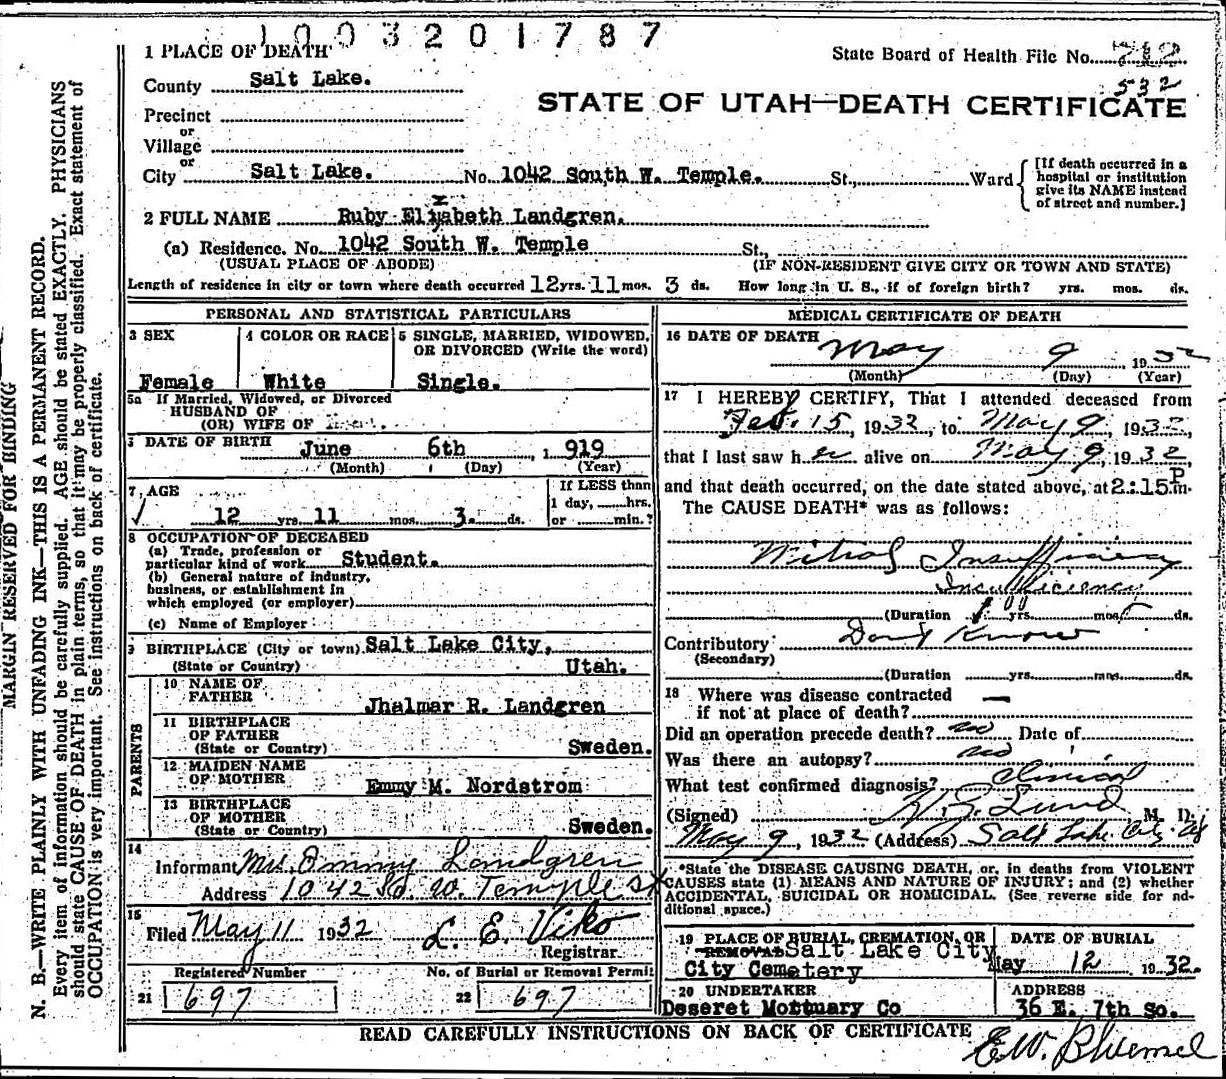 1003201787
1 PLACE OF DEATH
State Board of Health File No.
County Salt Lake.
532
STATE OF UTAH—DEATH CERTIFICATE
Precinct
or
Village
or
City Salt Lake. No. 1042 South W. Temple. St., Ward
[If death occurred in a
hospital or institution
give its NAME instead
of street and number.]
2 FULL NAME Ruby Elizabeth Landgren.
(a) Residence. No. 1042 South W. Temple St.,
(USUAL PLACE OF ABODE) (IF NON-RESIDENT GIVE CITY OR TOWN AND STATE)
Length of residence in city or town where death occurred 12 yrs. 11 mos. 3 ds. How long in U. S., if of foreign birth? yrs. mos. ds.
PERSONAL AND STATISTICAL PARTICULARS
3 SEX 4 COLOR OR RACE 5 SINGLE, MARRIED, WIDOWED,
OR DIVORCED (Write the word)
Female White Single.
5a If Married, Widowed, or Divorced
HUSBAND OF
(OR) WIFE OF
6 DATE OF BIRTH June 6th, 1919
(Month) (Day) (Year)
7 AGE If LESS than
1 day, hrs.
12 yrs. 11 mos. 3. ds. or min.?
8 OCCUPATION OF DECEASED
(a) Trade, profession or
particular kind of work Student.
(b) General nature of industry,
business, or establishment in
which employed (or employer)
(c) Name of Employer
9 BIRTHPLACE (City or town) Salt Lake City,
(State or Country) Utah.
PARENTS
10 NAME OF
FATHER Jhalmar R. Landgren
11 BIRTHPLACE
OF FATHER
(State or Country) Sweden.
12 MAIDEN NAME
OF MOTHER Emmy M. Nordstrom
13 BIRTHPLACE
OF MOTHER
(State or Country) Sweden.
14
Informant Mrs. Emmy Landgren
Address 1042 So. W. Temple St
15
Filed May 11 1932 L. E. Viko
Registrar.
Registered Number No. of Burial or Removal Permit
21 697 22 697
MEDICAL CERTIFICATE OF DEATH
16 DATE OF DEATH
May 9 1932
(Month) (Day) (Year)
17 I HEREBY CERTIFY, That I attended deceased from
Feb. 15, 1932, to May 9, 1932,
that I last saw her alive on May 9, 1932,
and that death occurred, on the date stated above, at 2:15 P m.
The CAUSE DEATH* was as follows:
Mitral Insufficiency
Insufficiency
(Duration yrs. mos. ds.
Contributory Dont Know
(Secondary)
(Duration yrs. mos. ds.
18 Where was disease contracted
if not at place of death? —
Did an operation precede death? no Date of
Was there an autopsy? no
What test confirmed diagnosis? Clinical
(Signed) Lund M. D.
May 9, 1932 (Address) Salt Lake City
*State the DISEASE CAUSING DEATH, or, in deaths from VIOLENT
CAUSES state (1) MEANS AND NATURE OF INJURY; and (2) whether
ACCIDENTAL, SUICIDAL OR HOMICIDAL. (See reverse side for ad-
ditional space.)
19 PLACE OF BURIAL, CREMATION, OR DATE OF BURIAL
REMOVAL Salt Lake City
City Cemetery May 12 1932.
20 UNDERTAKER ADDRESS
Deseret Mortuary Co 36 E. 7th So.
READ CAREFULLY INSTRUCTIONS ON BACK OF CERTIFICATE
MARGIN RESERVED FOR BINDING
N. B.—WRITE PLAINLY WITH UNFADING INK—THIS IS A PERMANENT RECORD.
Every item of information should be carefully supplied. AGE should be stated EXACTLY. PHYSICIANS
should state CAUSE OF DEATH in plain terms, so that it may be properly classified. Exact statement of
OCCUPATION is very important. See instructions on back of certificate.